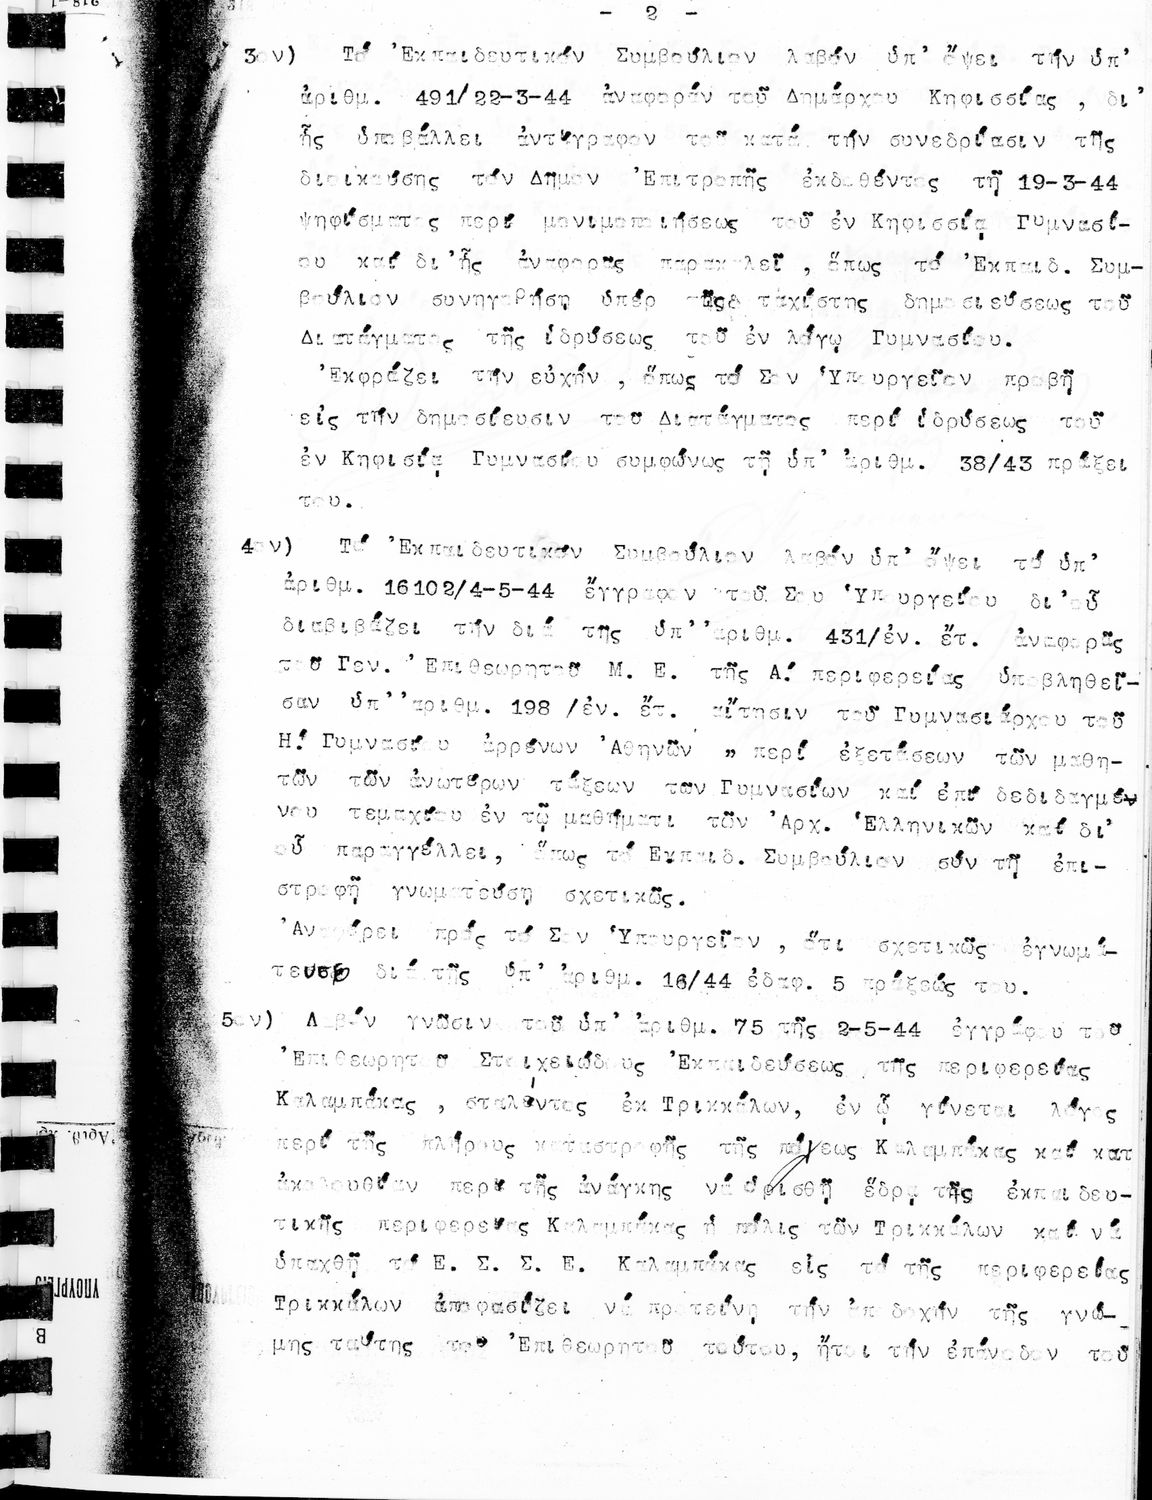 - 2 -
3ον) Τό Ἐκπαιδευτικόν Συμβούλιον λαβόν ὑπ' ὄψει τήν ὑπ'
ἀριθμ. 491/22-3-44 ἀναφοράν τοῦ Δημάρχου Κηφισσίας , δι'
ἧς ὑποβάλλει ἀντίγραφον τοῦ κατά τήν συνεδρίασιν τῆς
διοικούσης τόν Δῆμον Ἐπιτροπῆς ἐκδοθέντος τῇ 19-3-44
ψηφίσματος περί μονιμοποιήσεως τοῦ ἐν Κηφισσίᾳ Γυμνασί-
ου καί δι'ἧς ἀναφορᾶς παρακαλεῖ , ὅπως τό Ἐκπαιδ. Συμ-
βούλιον συνηγορήσῃ ὑπέρ τῆς ταχίστης δημοσιεύσεως τοῦ
Διατάγματος τῆς ἱδρύσεως τοῦ ἐν λόγῳ Γυμνασίου.
Ἐκφράζει τήν εὐχήν , ὅπως τό Σον Ὑπουργεῖον προβῇ
εἰς τήν δημοσίευσιν τοῦ Διατάγματος περί ἱδρύσεως τοῦ
ἐν Κηφισίᾳ Γυμνασίου συμφώνως τῇ ὑπ' ἀριθμ. 38/43 πράξει
του.
4ον) Τό Ἐκπαιδευτικόν Συμβούλιον λαβόν ὑπ' ὄψει τό ὑπ'
ἀριθμ. 16102/4-5-44 ἔγγραφον τοῦ Σου Ὑπουργείου δι'οὗ
διαβιβάζει τήν διά τῆς ὑπ' ἀριθμ. 431/ἐν. ἔτ. ἀναφορᾶς
τοῦ Γεν. Ἐπιθεωρητοῦ Μ. Ε. τῆς Α! περιφερείας ὑποβληθεῖ-
σαν ὑπ' ἀριθμ. 198 /ἐν. ἔτ. αἴτησιν τοῦ Γυμνασιάρχου τοῦ
Η! Γυμνασίου ἀρρένων Ἀθηνῶν " περί ἐξετάσεων τῶν μαθη-
τῶν τῶν ἀνωτέρων τάξεων τῶν Γυμνασίων καί ἐπί δεδιδαγμέν
νου τεμαχίου ἐν τῷ μαθήματι τῶν Ἀρχ. Ἑλληνικῶν καί δι'
οὗ παραγγέλλει, ὅπως τό Εκπαιδ. Συμβούλιον σύν τῇ ἐπι-
στροφῇ γνωματεύσῃ σχετικῶς.
Ἀναφέρει πρός τό Σον Ὑπουργεῖον , ὅτι σχετικῶς ἐγνωμά-
τευσε διά τῆς ὑπ' ἀριθμ. 16/44 ἐδαφ. 5 πράξεώς του.
5ον) Λαβόν γνῶσιν τοῦ ὑπ' ἀριθμ. 75 τῆς 2-5-44 ἐγγράφου τοῦ
Ἐπιθεωρητοῦ Στοιχειώδους Ἐκπαιδεύσεως τῆς περιφερείας
Καλαμπάκας , σταλέντος ἐκ Τρικκάλων, ἐν ᾧ γίνεται λόγος
περί τῆς πλήρους καταστροφῆς τῆς πόλεως Καλαμπάκας καί κατ
ἀκολουθίαν περί τῆς ἀνάγκης νά ὁρισθῇ ἕδρα τῆς ἐκπαιδευ-
τικῆς περιφερείας Καλαμπάκας ἡ πόλις τῶν Τρικκάλων καί νά
ὑπαχθῇ τό Ε. Σ. Σ. Ε. Καλαμπάκας εἰς τό τῆς περιφερείας
Τρικκάλων ἀποφασίζει νά προτείνῃ τήν ἀποδοχήν τῆς γνώ-
μης ταύτης τοῦ Ἐπιθεωρητοῦ τούτου, ἤτοι τήν ἐπάνοδον τοῦ